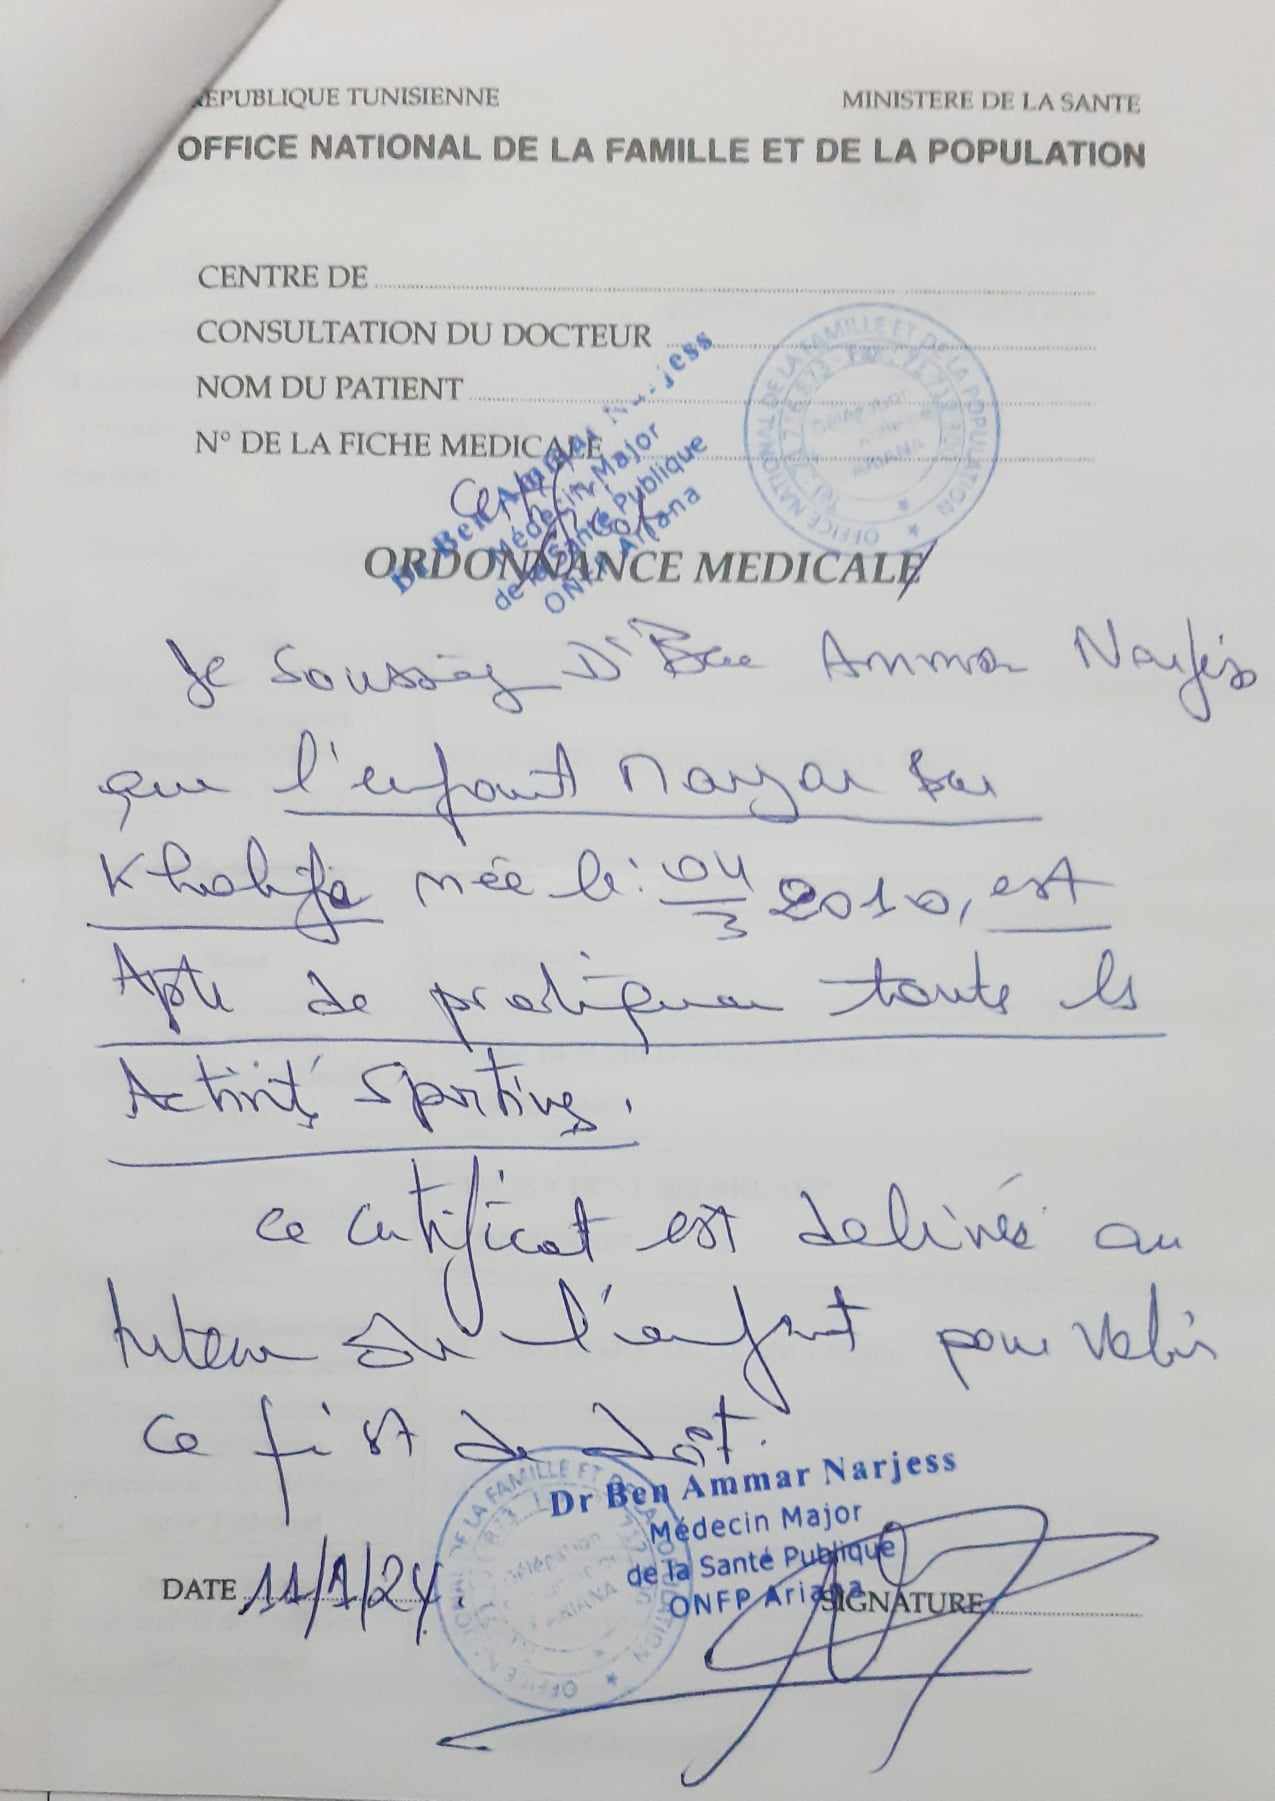 REPUBLIQUE TUNISIENNE
MINISTERE DE LA SANTE
OFFICE NATIONAL DE LA FAMILLE ET DE LA POPULATION
CENTRE DE
CONSULTATION DU DOCTEUR
NOM DU PATIENT
N° DE LA FICHE MEDICALE
Dr Ben Ammar Narjess
Médecin Major
de la Santé Publique
ONFP Ariana
OFFICE NATIONAL DE LA FAMILLE ET DE LA POPULATION
ARIANA
Certificat
ORDONNANCE MEDICALE
Je Soussigné Dr Ben Ammar Narjess
que l'enfant Maryar Ben
Khalifa née le : 04/3 2010, est
Apte de pratiquer toute les
Activités sportives.
Ce certificat est delivrés au
tuteur de l'enfant pour valoir
ce fist de doît.
Dr Ben Ammar Narjess
Médecin Major
de la Santé Publique
ONFP Ariana
OFFICE NATIONAL DE LA FAMILLE ET DE LA POPULATION
ARIANA
DATE 11/1/24.
SIGNATURE